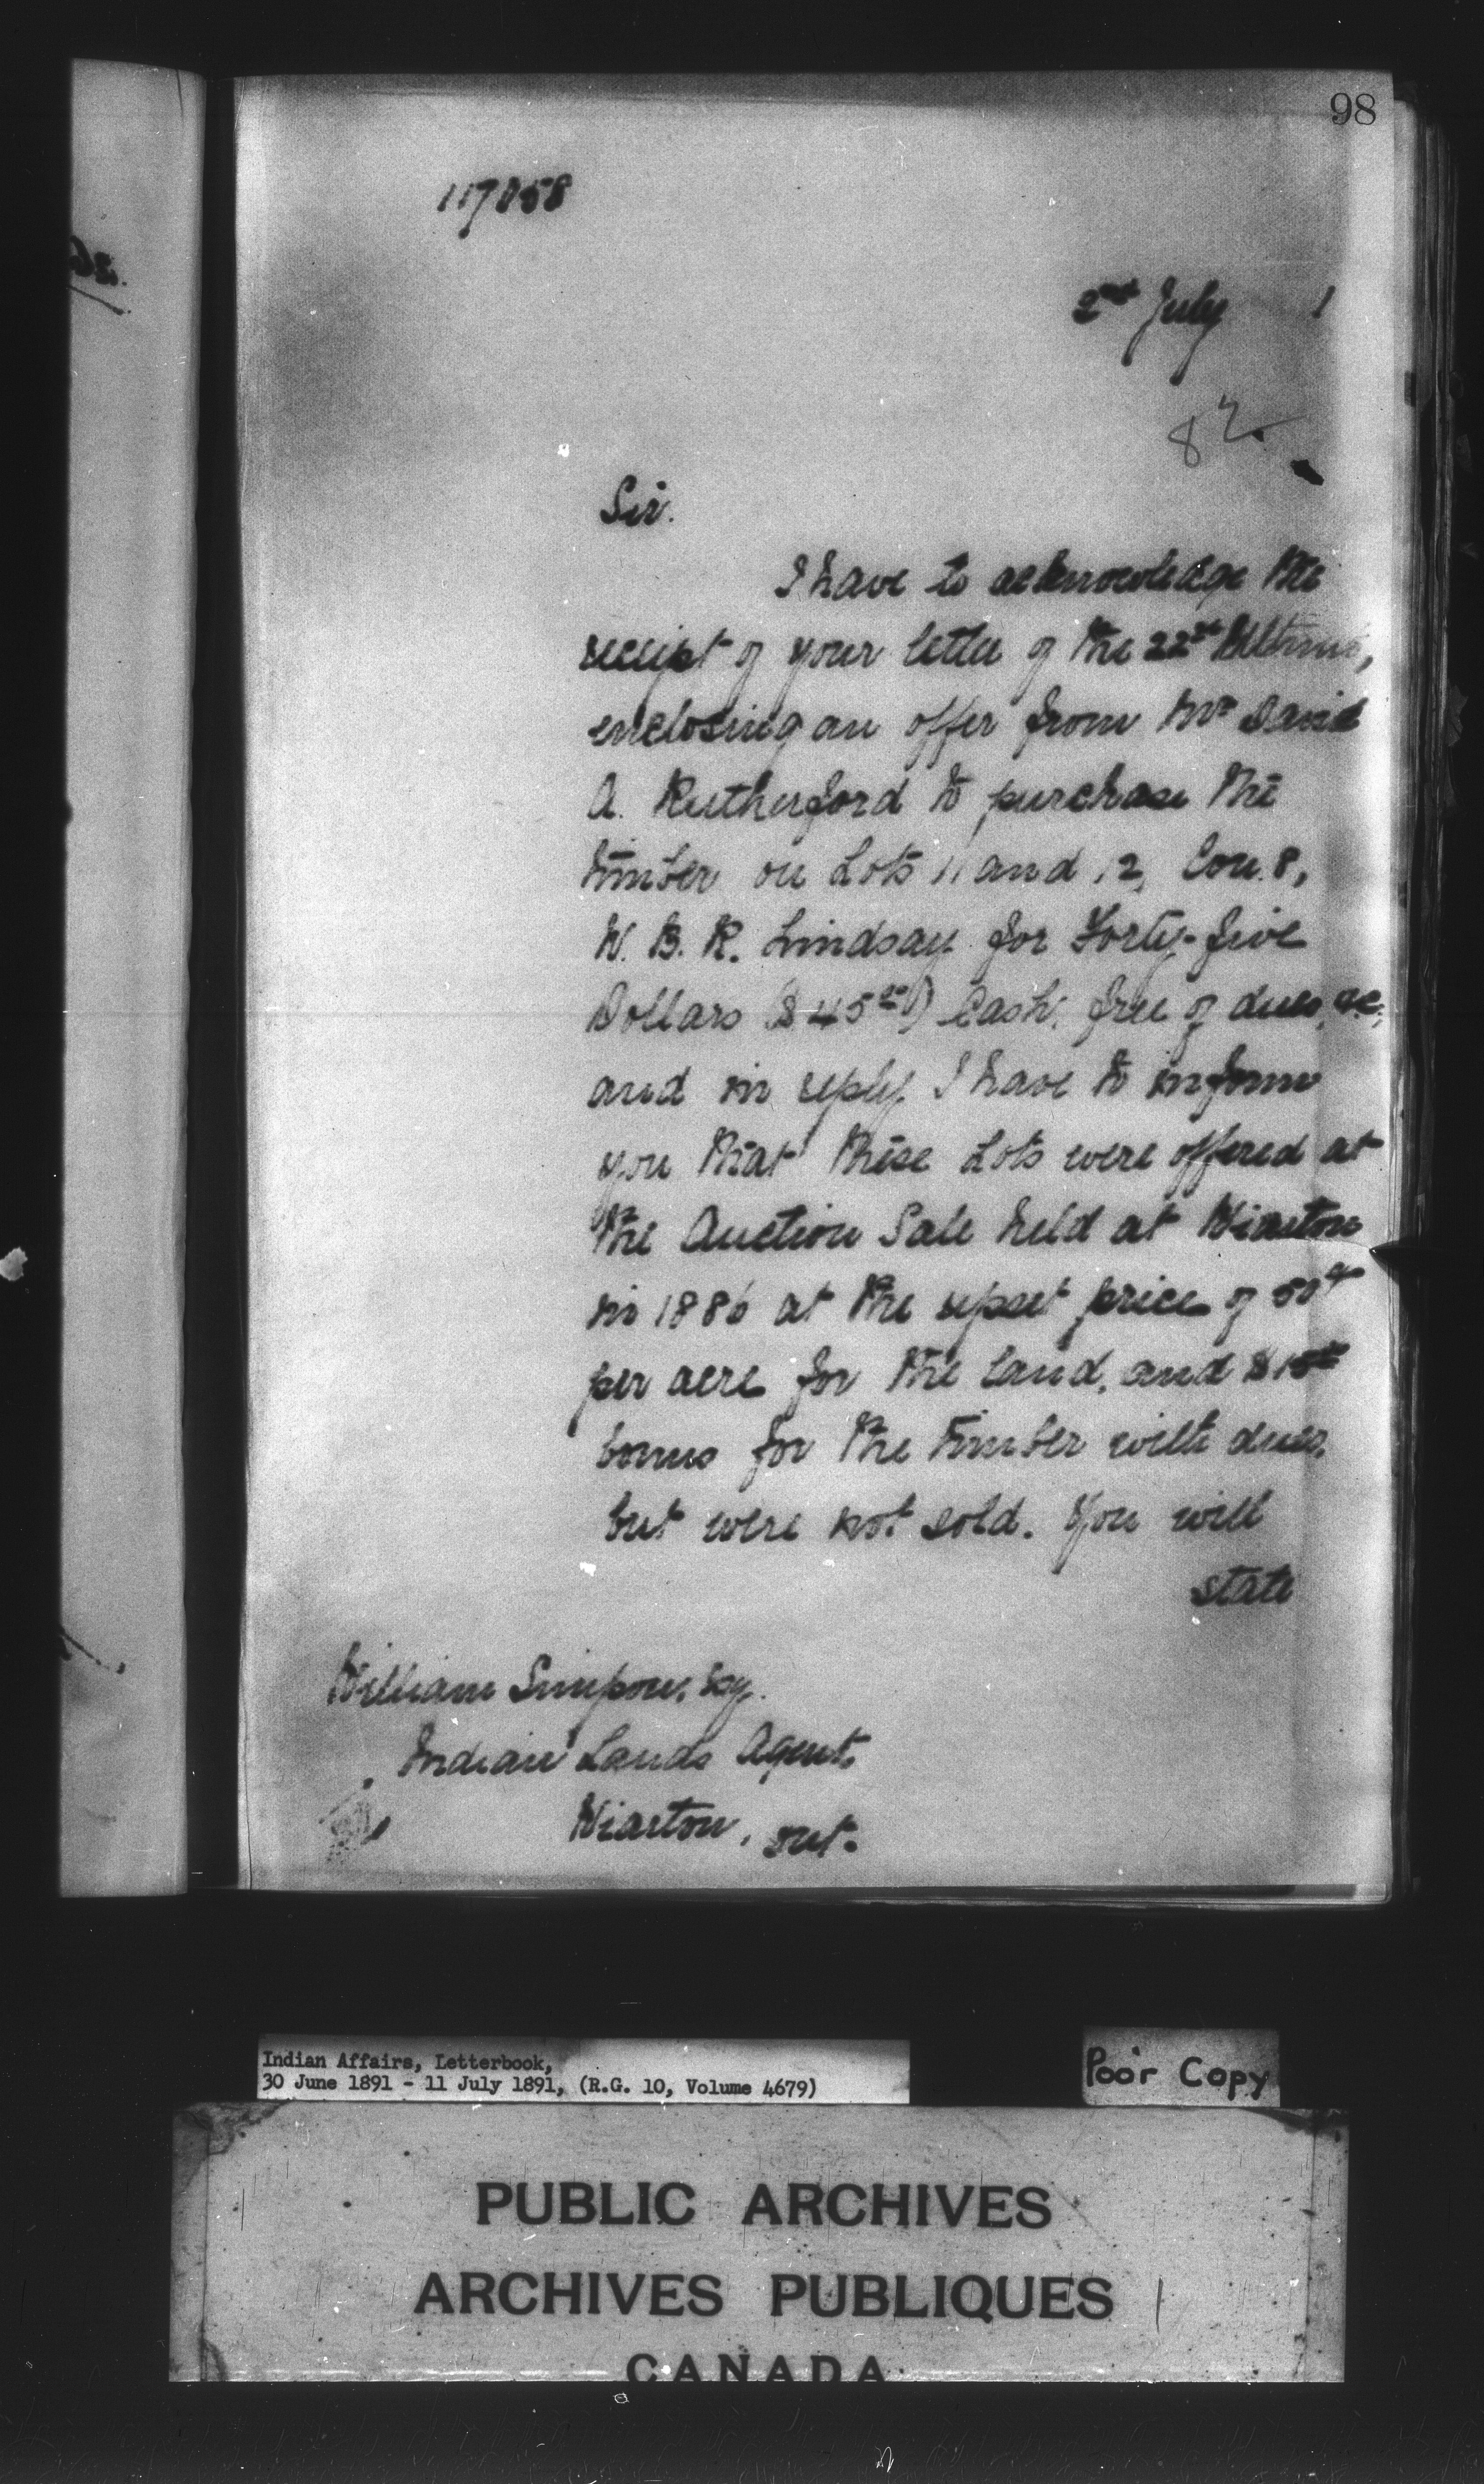 98
117858
2nd July 1
82
Sir.
I have to acknowledge the
receipt of your letter of the 22nd Ultimo,
enclosing an offer from Mr David
A. Rutherford to purchase the
timber on Lots 11 and 12, Con. 8,
W. B. R. Lindsay for Forty-five
Dollars ($45.00) Cash, free of dues, &c,
and in reply I have to inform
you that these Lots were offered at
the Auction Sale held at Wiarton
in 1886 at the upset price of 50cts
per acre for the land, and
bonus for the timber with dues,
but were not sold. You will
state
William Simpson, Esq.
Indian Lands Agent,
Wiarton, Ont.
Indian Affairs, Letterbook,
30 June 1891 - 11 July 1891, (R.G. 10, Volume 4679)
Poor Copy
PUBLIC ARCHIVES
ARCHIVES PUBLIQUES
CANADA